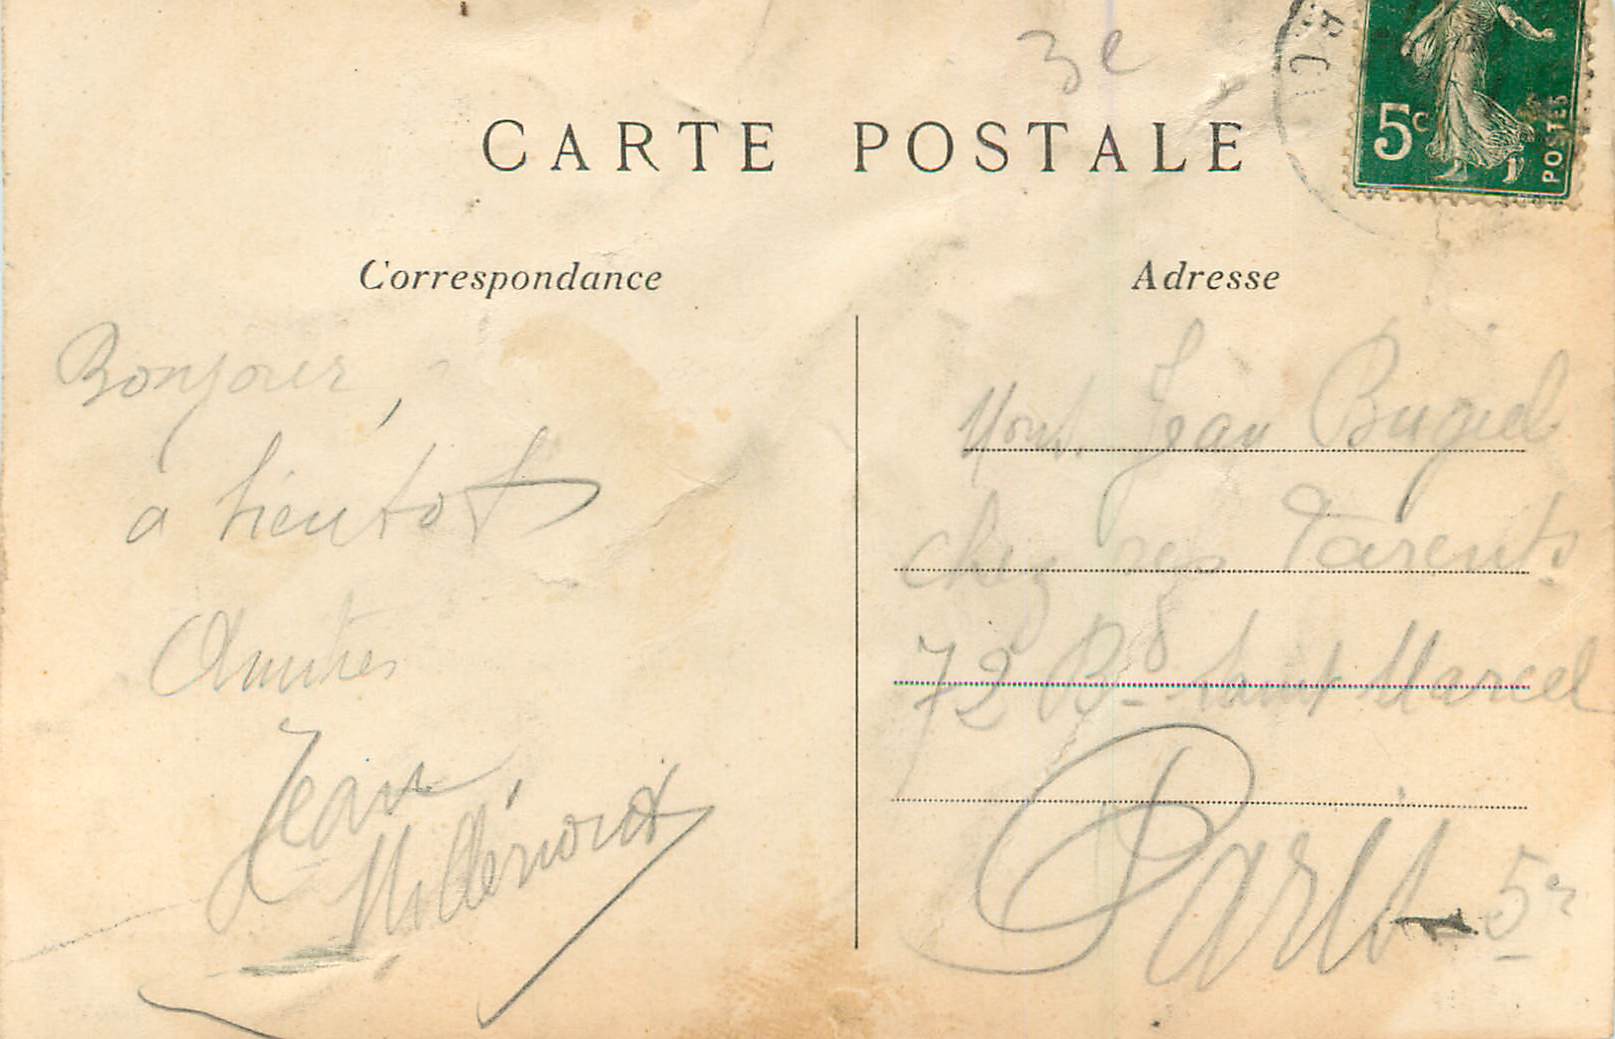 3e
CARTE POSTALE
RC
5c
POSTES
Correspondance
Bonjour,
a bientot
Amities
Jean
Adresse
Mons. Jean Bugiel
chez ses Parents
72 Bd Saint Marcel
Paris 5e